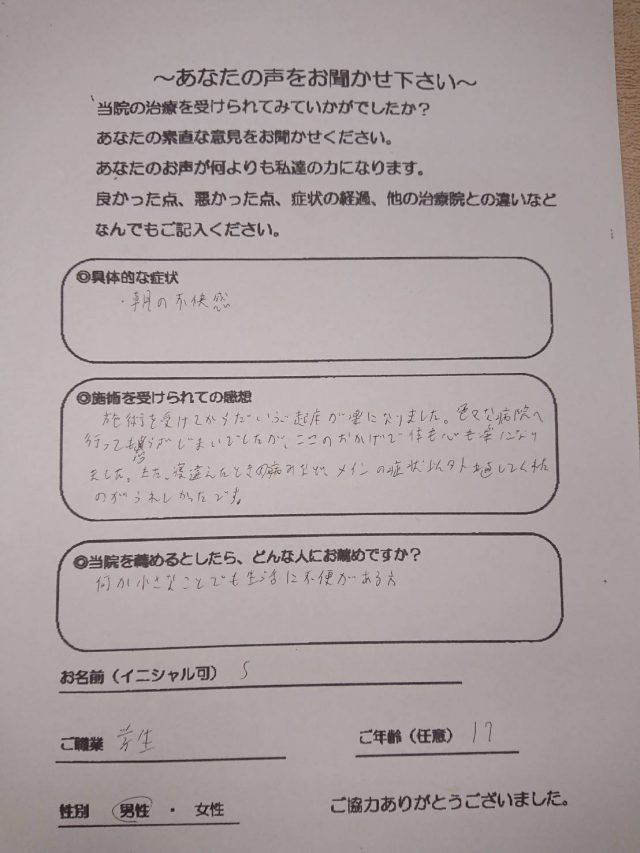 ～あなたの声をお聞かせ下さい～
当院の治療を受けられてみていかがでしたか？
あなたの素直な意見をお聞かせください。
あなたのお声が何よりも私達の力になります。
良かった点、悪かった点、症状の経過、他の治療院との違いなど
なんでもご記入ください。
◎具体的な症状
・朝の不快感
◎施術を受けられての感想
施術を受けてからだいぶ起床が楽になりました。色々な病院へ
行っても分からずじまいでしたが、ここのおかげで体も心も楽になり
ました。また、寝違えたときの痛みなど、メインの症状以外も通してくれた
のがうれしかったです。
◎当院を薦めるとしたら、どんな人にお薦めですか？
何か小さなことでも生活に不便がある方
お名前（イニシャル可） S
ご職業 学生 ご年齢（任意） 17
性別 男性 ・ 女性
ご協力ありがとうございました。